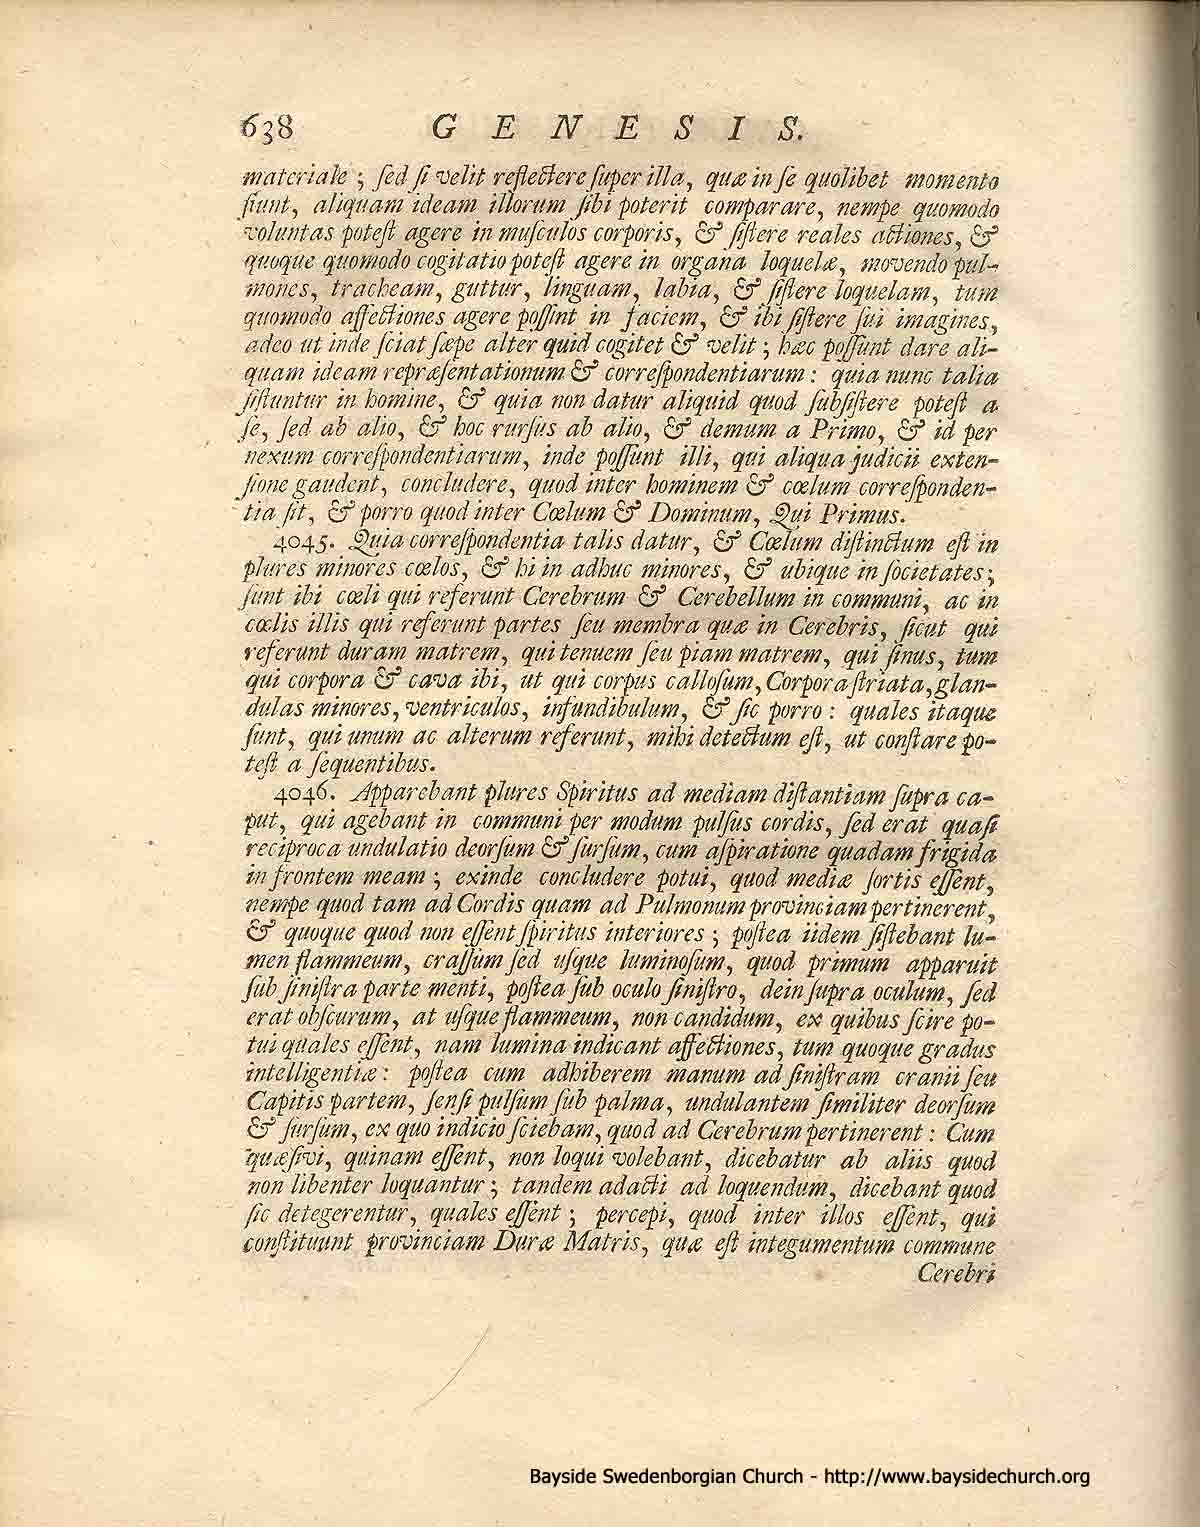 638 GENESIS.
materiale ; ſed ſi velit reflectere ſuper illa, quæ in ſe quolibet momento
fiunt, aliquam ideam illorum ſibi poterit comparare, nempe quomodo
voluntas poteſt agere in muſculos corporis, & ſiſtere reales actiones, &
quoque quomodo cogitatio poteſt agere in organa loquelæ, movendo pul-
mones, tracheam, guttur, linguam, labia, & ſiſtere loquelam, tum
quomodo affectiones agere poſſint in faciem, & ibi ſiſtere ſui imagines,
adeo ut inde ſciat ſæpe alter quid cogitet & velit ; hæc poſſunt dare ali-
quam ideam repræſentationum & correſpondentiarum : quia nunc talia
ſiſtuntur in homine, & quia non datur aliquid quod ſubſiſtere poteſt a
ſe, ſed ab alio, & hoc rurſus ab alio, & demum a Primo, & id per
nexum correſpondentiarum, inde poſſunt illi, qui aliqua judicii exten-
ſione gaudent, concludere, quod inter hominem & cœlum correſponden-
tia ſit, & porro quod inter Cœlum & Dominum, Qui Primus.
4045. Quia correſpondentia talis datur, & Cœlum diſtinctum eſt in
plures minores cœlos, & hi in adhuc minores, & ubique in ſocietates ;
ſunt ibi cœli qui referunt Cerebrum & Cerebellum in communi, ac in
cœlis illis qui referunt partes ſeu membra quæ in Cerebris, ſicut qui
referunt duram matrem, qui tenuem ſeu piam matrem, qui ſinus, tum
qui corpora & cava ibi, ut qui corpus calloſum, Corpora ſtriata, glan-
dulas minores, ventriculos, infundibulum, & ſic porro : quales itaque
ſunt, qui unum ac alterum referunt, mihi detectum eſt, ut conſtare po-
teſt a ſequentibus.
4046. Apparebant plures Spiritus ad mediam diſtantiam ſupra ca-
put, qui agebant in communi per modum pulſus cordis, ſed erat quaſi
reciproca undulatio deorſum & ſurſum, cum aſpiratione quadam frigida
in frontem meam ; exinde concludere potui, quod mediæ ſortis eſſent,
nempe quod tam ad Cordis quam ad Pulmonum provinciam pertinerent,
& quoque quod non eſſent ſpiritus interiores ; poſtea iidem ſiſtebant lu-
men flammeum, craſſum ſed uſque luminoſum, quod primum apparuit
ſub ſiniſtra parte menti, poſtea ſub oculo ſiniſtro, dein ſupra oculum, ſed
erat obſcurum, at uſque flammeum, non candidum, ex quibus ſcire po-
tui quales eſſent, nam lumina indicant affectiones, tum quoque gradus
intelligentiæ : poſtea cum adhiberem manum ad ſiniſtram cranii ſeu
Capitis partem, ſenſi pulſum ſub palma, undulantem ſimiliter deorſum
& ſurſum, ex quo indicio ſciebam, quod ad Cerebrum pertinerent : Cum
quæſivi, quinam eſſent, non loqui volebant, dicebatur ab aliis quod
non libenter loquantur ; tandem adacti ad loquendum, dicebant quod
ſic detegerentur, quales eſſent ; percepi, quod inter illos eſſent, qui
conſtituunt provinciam Duræ Matris, quæ eſt integumentum commune
Cerebri
Bayside Swedenborgian Church - http://www.baysidechurch.org